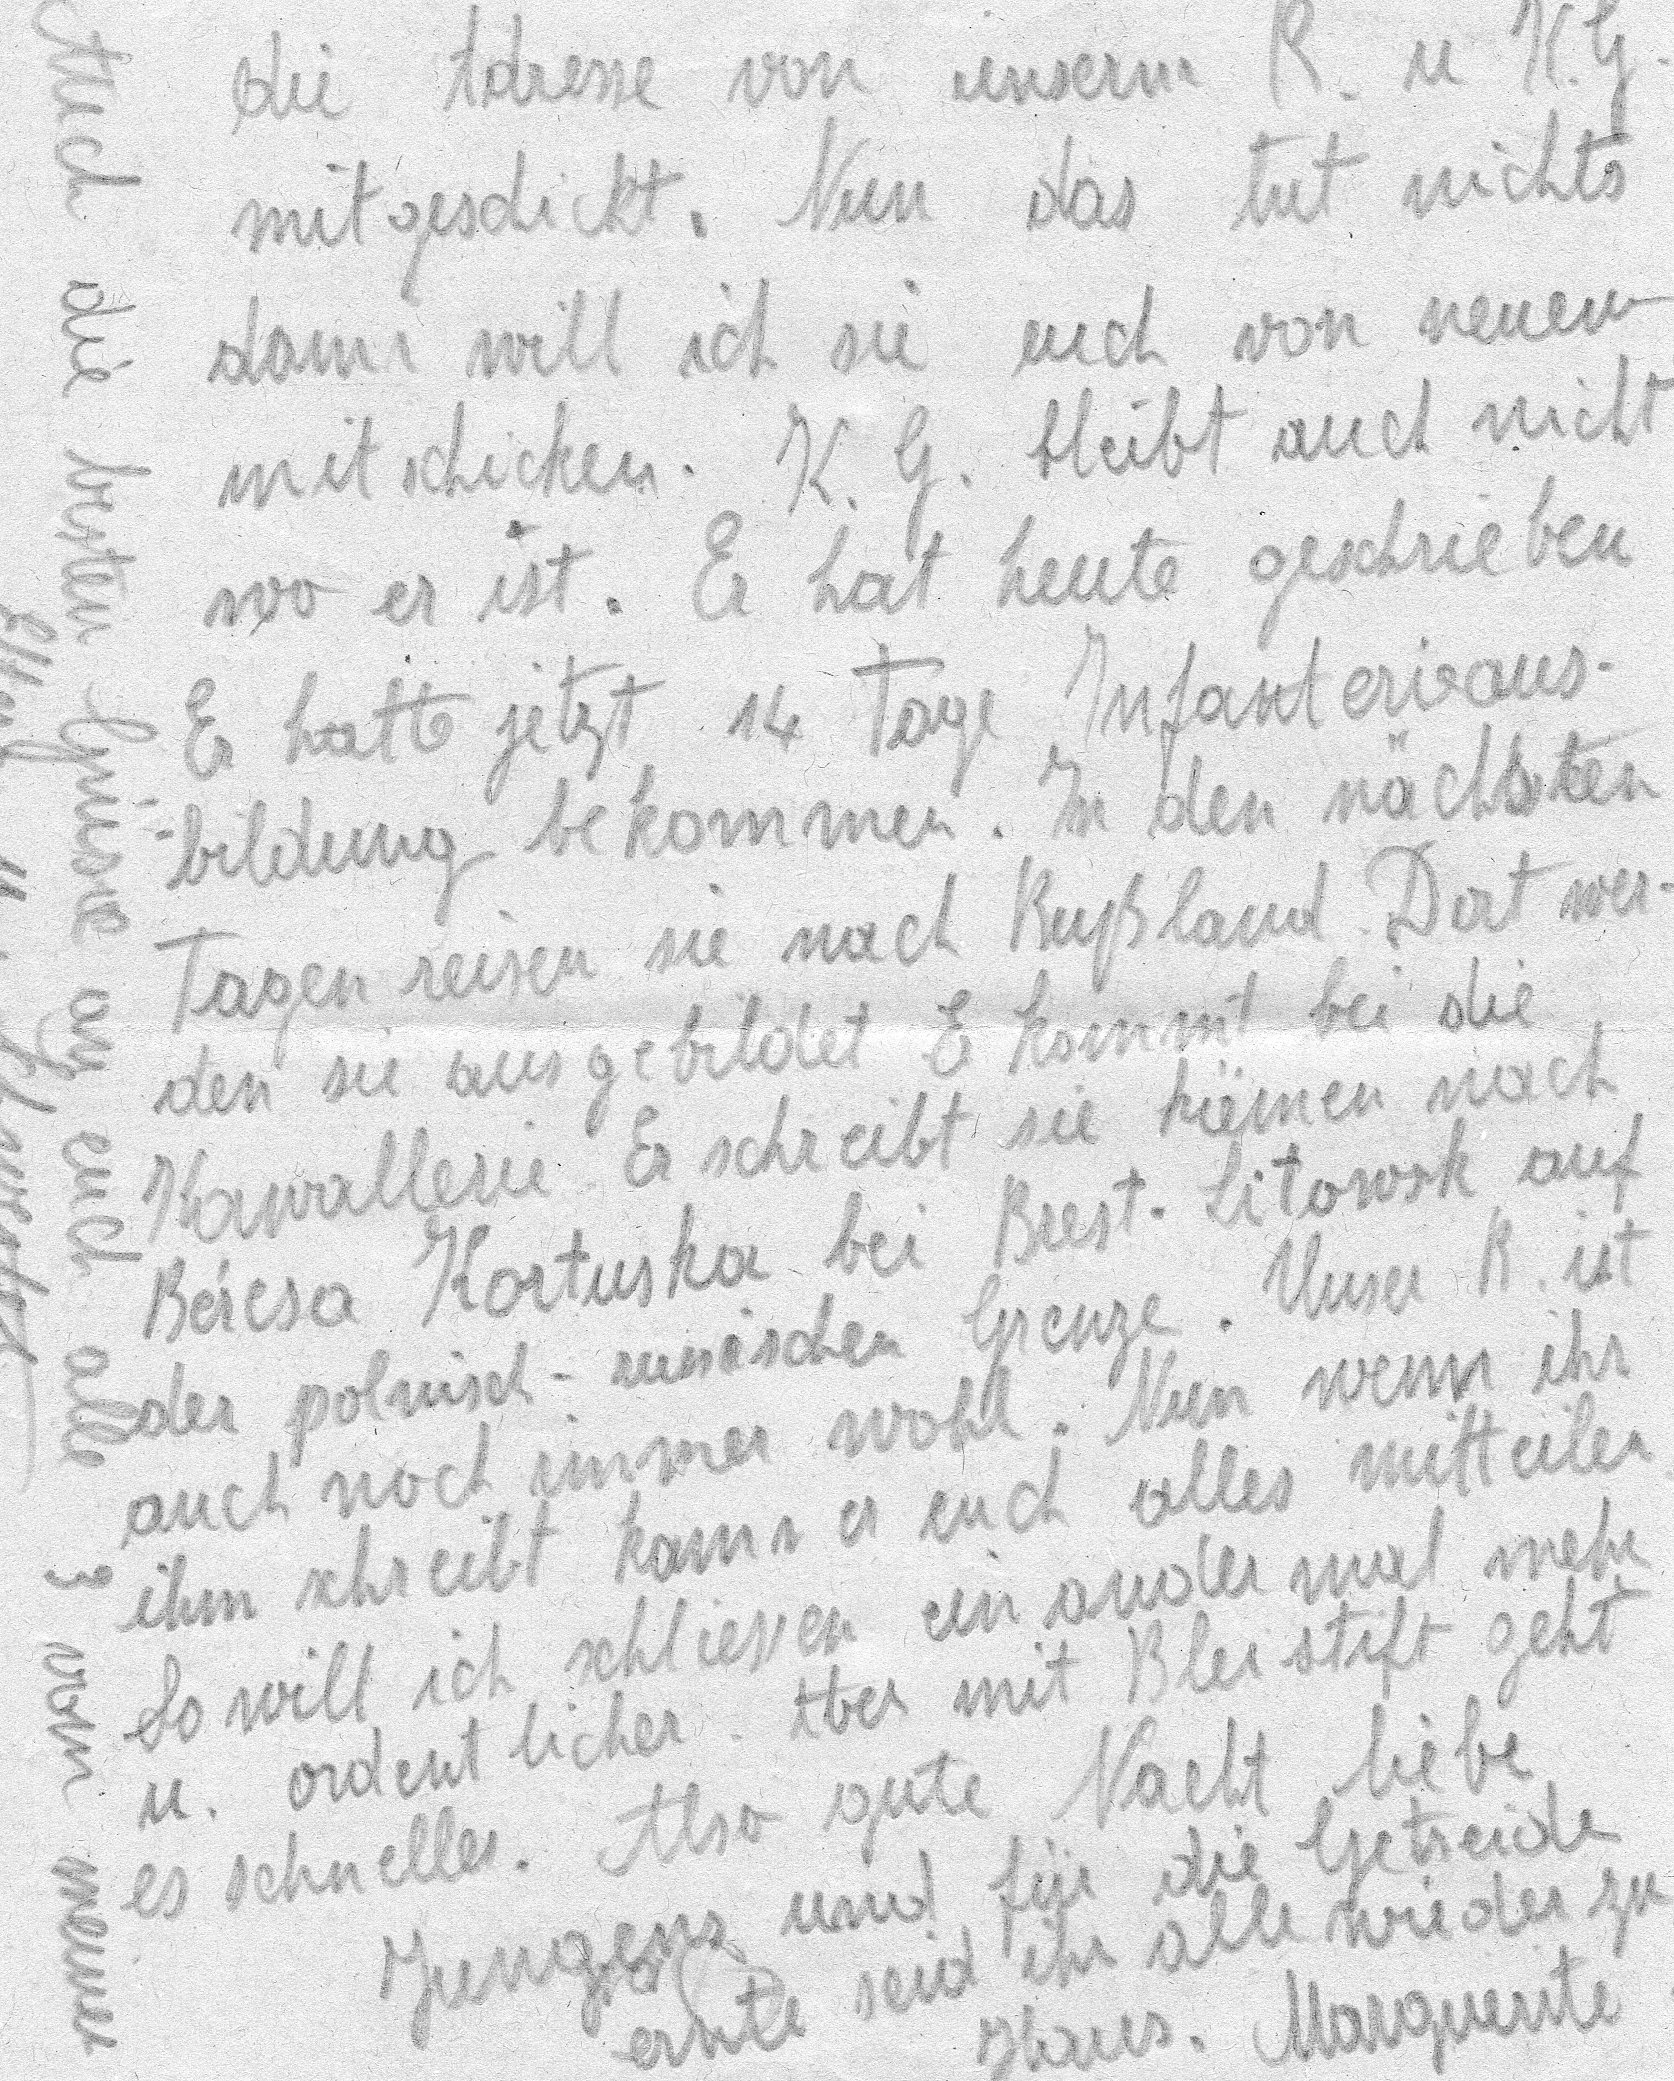 die Adresse von unserm R. u K.G.
mitgeschickt. Nun das tut nichts
dann will ich sie euch von neuem
mitschicken. K. G. bleibt auch nicht
wo er ist. Er hat heute geschrieben
Er hatte jetzt 14 Tage Infanterieaus-
-bildung bekommen. In den nächsten
Tagen reisen sie nach Rußland. Dort wer-
den sie ausgebildet E kommt bei die
Kawallerie. Er schreibt sie kämen nach
Béresa Kortuska bei Brest-Litowsk auf
der polnisch-russischen Grenze. Unser R. ist
auch noch immer wohl. Nun wenn ihr
ihm schreibt kann er euch alles mitteilen
So will ich schliesen ein andermal mehr
u. ordentlicher. Aber mit Bleistift geht
es schneller. Also gute Nacht liebe
Jungens und für die Getreide
ernte seid ihr alle wieder zu
Haus. Marguerite
Auch die besten Grüsse an euch alle 3 von meine
Eltern u.